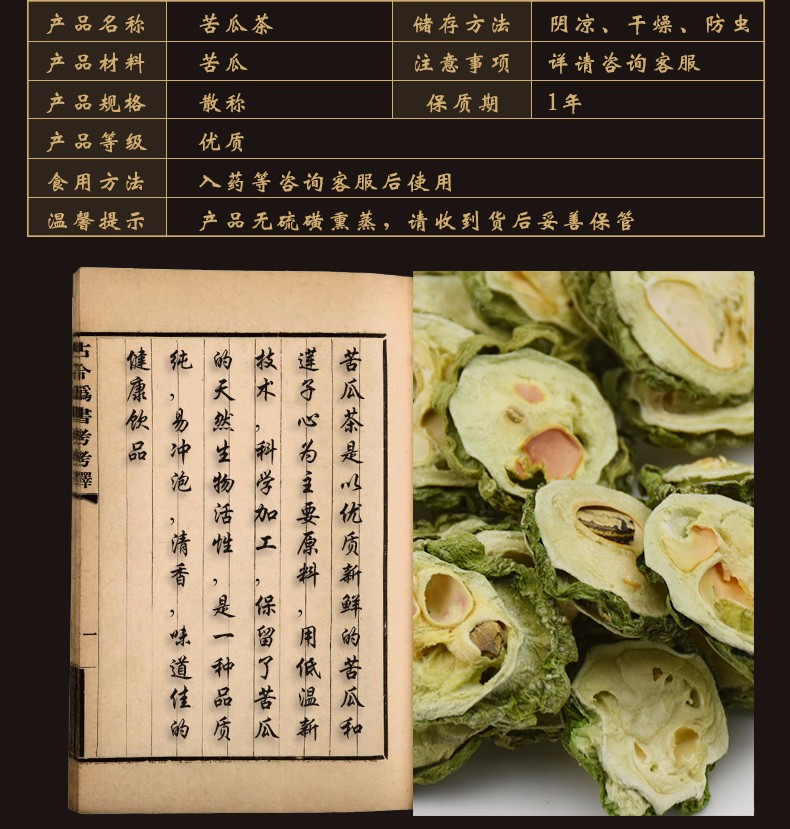 产品名称 苦瓜茶 储存方法 阴凉、干燥、防虫
产品材料 苦瓜 注意事项 详请咨询客服
产品规格 散称 保质期 1年
产品等级 优质
食用方法 入药等咨询客服后使用
温馨提示 产品无硫磺熏蒸，请收到货后妥善保管
苦瓜茶是以优质新鲜的苦瓜和
莲子心为主要原料，用低温新
技术，科学加工，保留了苦瓜
的天然生物活性，是一种品质
纯，易冲泡，清香，味道佳的
健康饮品
書考考釋
一